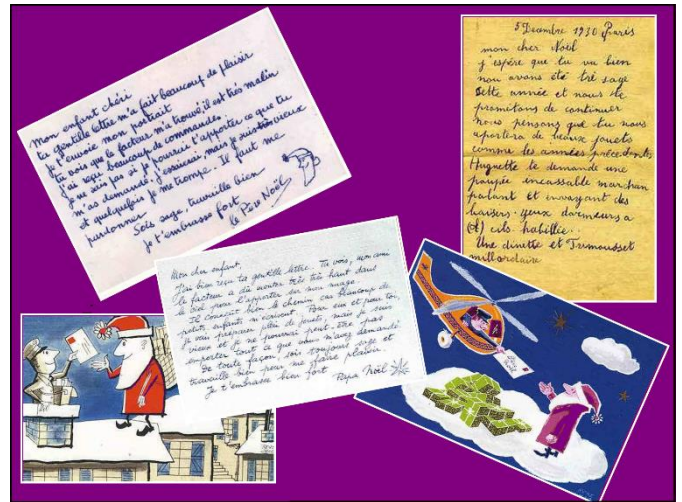 Mon enfant chéri
tu gentille lettre m'a fait beaucoup de plaisir
je t'envoie mon portrait
tu vois que le facteur m'a trouvé, il est très malin
j'ai reçu beaucoup de commandes.
je ne sais pas si je pourrai t'apporter ce que tu
m'as demandé. j'essaierai, mais je suis très vieux
et quelquefois je me trompe. Il faut me
pardonner
Sois sage, travaille bien
je t'embrasse fort
le Père Noël
5 Decembre 1930 Paris
mon cher Noël
j'espère que tu va bien
nou avons été trè sage
cette année et nous te
promettons de continuer
nous pensons que tu nous
aportera de beaux jouets
comme les années précédentes
Huguette te demande une
poupée incassable marchan
parlant et envoyant des
baisers. yeux dormeurs a
cils habillée.
Une dinette et Trimousset
milliardaire
Mon cher enfant.
J'ai bien reçu ta gentille lettre. Tu vois, mon ami
le facteur a dû monter très très haut dans
le ciel pour l'apporter sur mon nuage.
Il connait bien le chemin car beaucoup de
petits enfants m'écrivent. Pour eux et pour toi,
je vais préparer plein de jouets, mais je suis
vieux et je ne pourrai peut-être pas
emporter tout ce que vous m'avez demandé.
De toute façon sois toujours sage et
travaille bien pour me faire plaisir.
Je t'embrasse bien fort Papa Noël